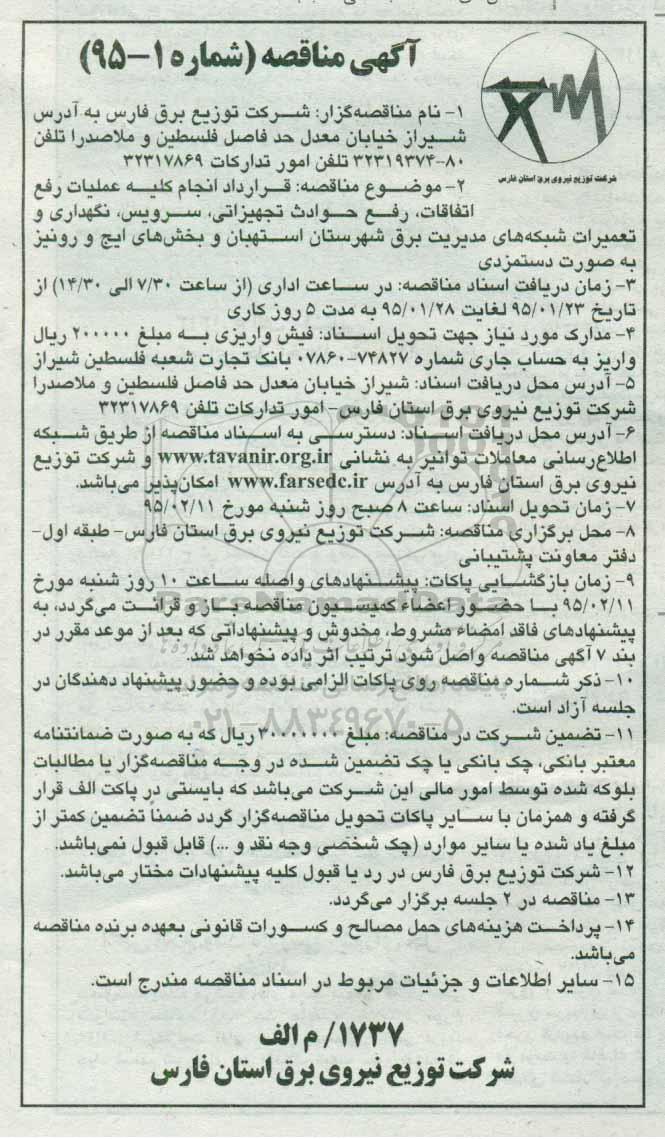 آگهی مناقصه (شماره ۱-۹۵)
شرکت توزیع نیروی برق استان فارس
۱- نام مناقصه‌گزار: شرکت توزیع برق فارس به آدرس
شیراز خیابان معدل حد فاصل فلسطین و ملاصدرا تلفن
۸۰-۳۲۳۱۹۳۷۴ تلفن امور تدارکات ۳۲۳۱۷۸۶۹
۲- موضوع مناقصه: قرارداد انجام کلیه عملیات رفع
اتفاقات، رفع حوادث تجهیزاتی، سرویس، نگهداری و
تعمیرات شبکه‌های مدیریت برق شهرستان استهبان و بخش‌های ایج و رونیز
به صورت دستمزدی
۳- زمان دریافت اسناد مناقصه: در ساعت اداری (از ساعت ۷/۳۰ الی ۱۴/۳۰) از
تاریخ ۹۵/۰۱/۲۳ لغایت ۹۵/۰۱/۲۸ به مدت ۵ روز کاری
۴- مدارک مورد نیاز جهت تحویل اسناد: فیش واریزی به مبلغ ۲۰۰۰۰۰ ریال
واریز به حساب جاری شماره ۷۴۸۲۷-۰۷۸۶۰ بانک تجارت شعبه فلسطین شیراز
۵- آدرس محل دریافت اسناد: شیراز خیابان معدل حد فاصل فلسطین و ملاصدرا
شرکت توزیع نیروی برق استان فارس- امور تدارکات تلفن ۳۲۳۱۷۸۶۹
۶- آدرس محل دریافت اسناد: دسترسی به اسناد مناقصه از طریق شبکه
اطلاع‌رسانی معاملات توانیر به نشانی www.tavanir.org.ir و شرکت توزیع
نیروی برق استان فارس به آدرس www.farsedc.ir امکان‌پذیر می‌باشد.
۷- زمان تحویل اسناد: ساعت ۸ صبح روز شنبه مورخ ۹۵/۰۲/۱۱
۸- محل برگزاری مناقصه: شرکت توزیع نیروی برق استان فارس- طبقه اول-
دفتر معاونت پشتیبانی
۹- زمان بازگشایی پاکات: پیشنهادهای واصله ساعت ۱۰ روز شنبه مورخ
۹۵/۰۲/۱۱ با حضور اعضاء کمیسیون مناقصه باز و قرائت می‌گردد، به
پیشنهادهای فاقد امضاء مشروط، مخدوش و پیشنهاداتی که بعد از موعد مقرر در
بند ۷ آگهی مناقصه واصل شود ترتیب اثر داده نخواهد شد.
۱۰- ذکر شماره مناقصه روی پاکات الزامی بوده و حضور پیشنهاد دهندگان در
جلسه آزاد است.
ParsNamadData
۰۲۱-۸۸۳۴۹۶۷۰-۵
۱۱- تضمین شرکت در مناقصه: مبلغ ۳۰۰۰۰۰۰۰ ریال که به صورت ضمانتنامه
معتبر بانکی، چک بانکی یا چک تضمین شده در وجه مناقصه‌گزار یا مطالبات
بلوکه شده توسط امور مالی این شرکت می‌باشد که بایستی در پاکت الف قرار
گرفته و همزمان با سایر پاکات تحویل مناقصه‌گزار گردد ضمناً تضمین کمتر از
مبلغ یاد شده یا سایر موارد (چک شخصی وجه نقد و ...) قابل قبول نمی‌باشد.
۱۲- شرکت توزیع برق فارس در رد یا قبول کلیه پیشنهادات مختار می‌باشد.
۱۳- مناقصه در ۲ جلسه برگزار می‌گردد.
۱۴- پرداخت هزینه‌های حمل مصالح و کسورات قانونی بعهده برنده مناقصه
می‌باشد.
۱۵- سایر اطلاعات و جزئیات مربوط در اسناد مناقصه مندرج است.
۱۷۳۷/ م الف
شرکت توزیع نیروی برق استان فارس